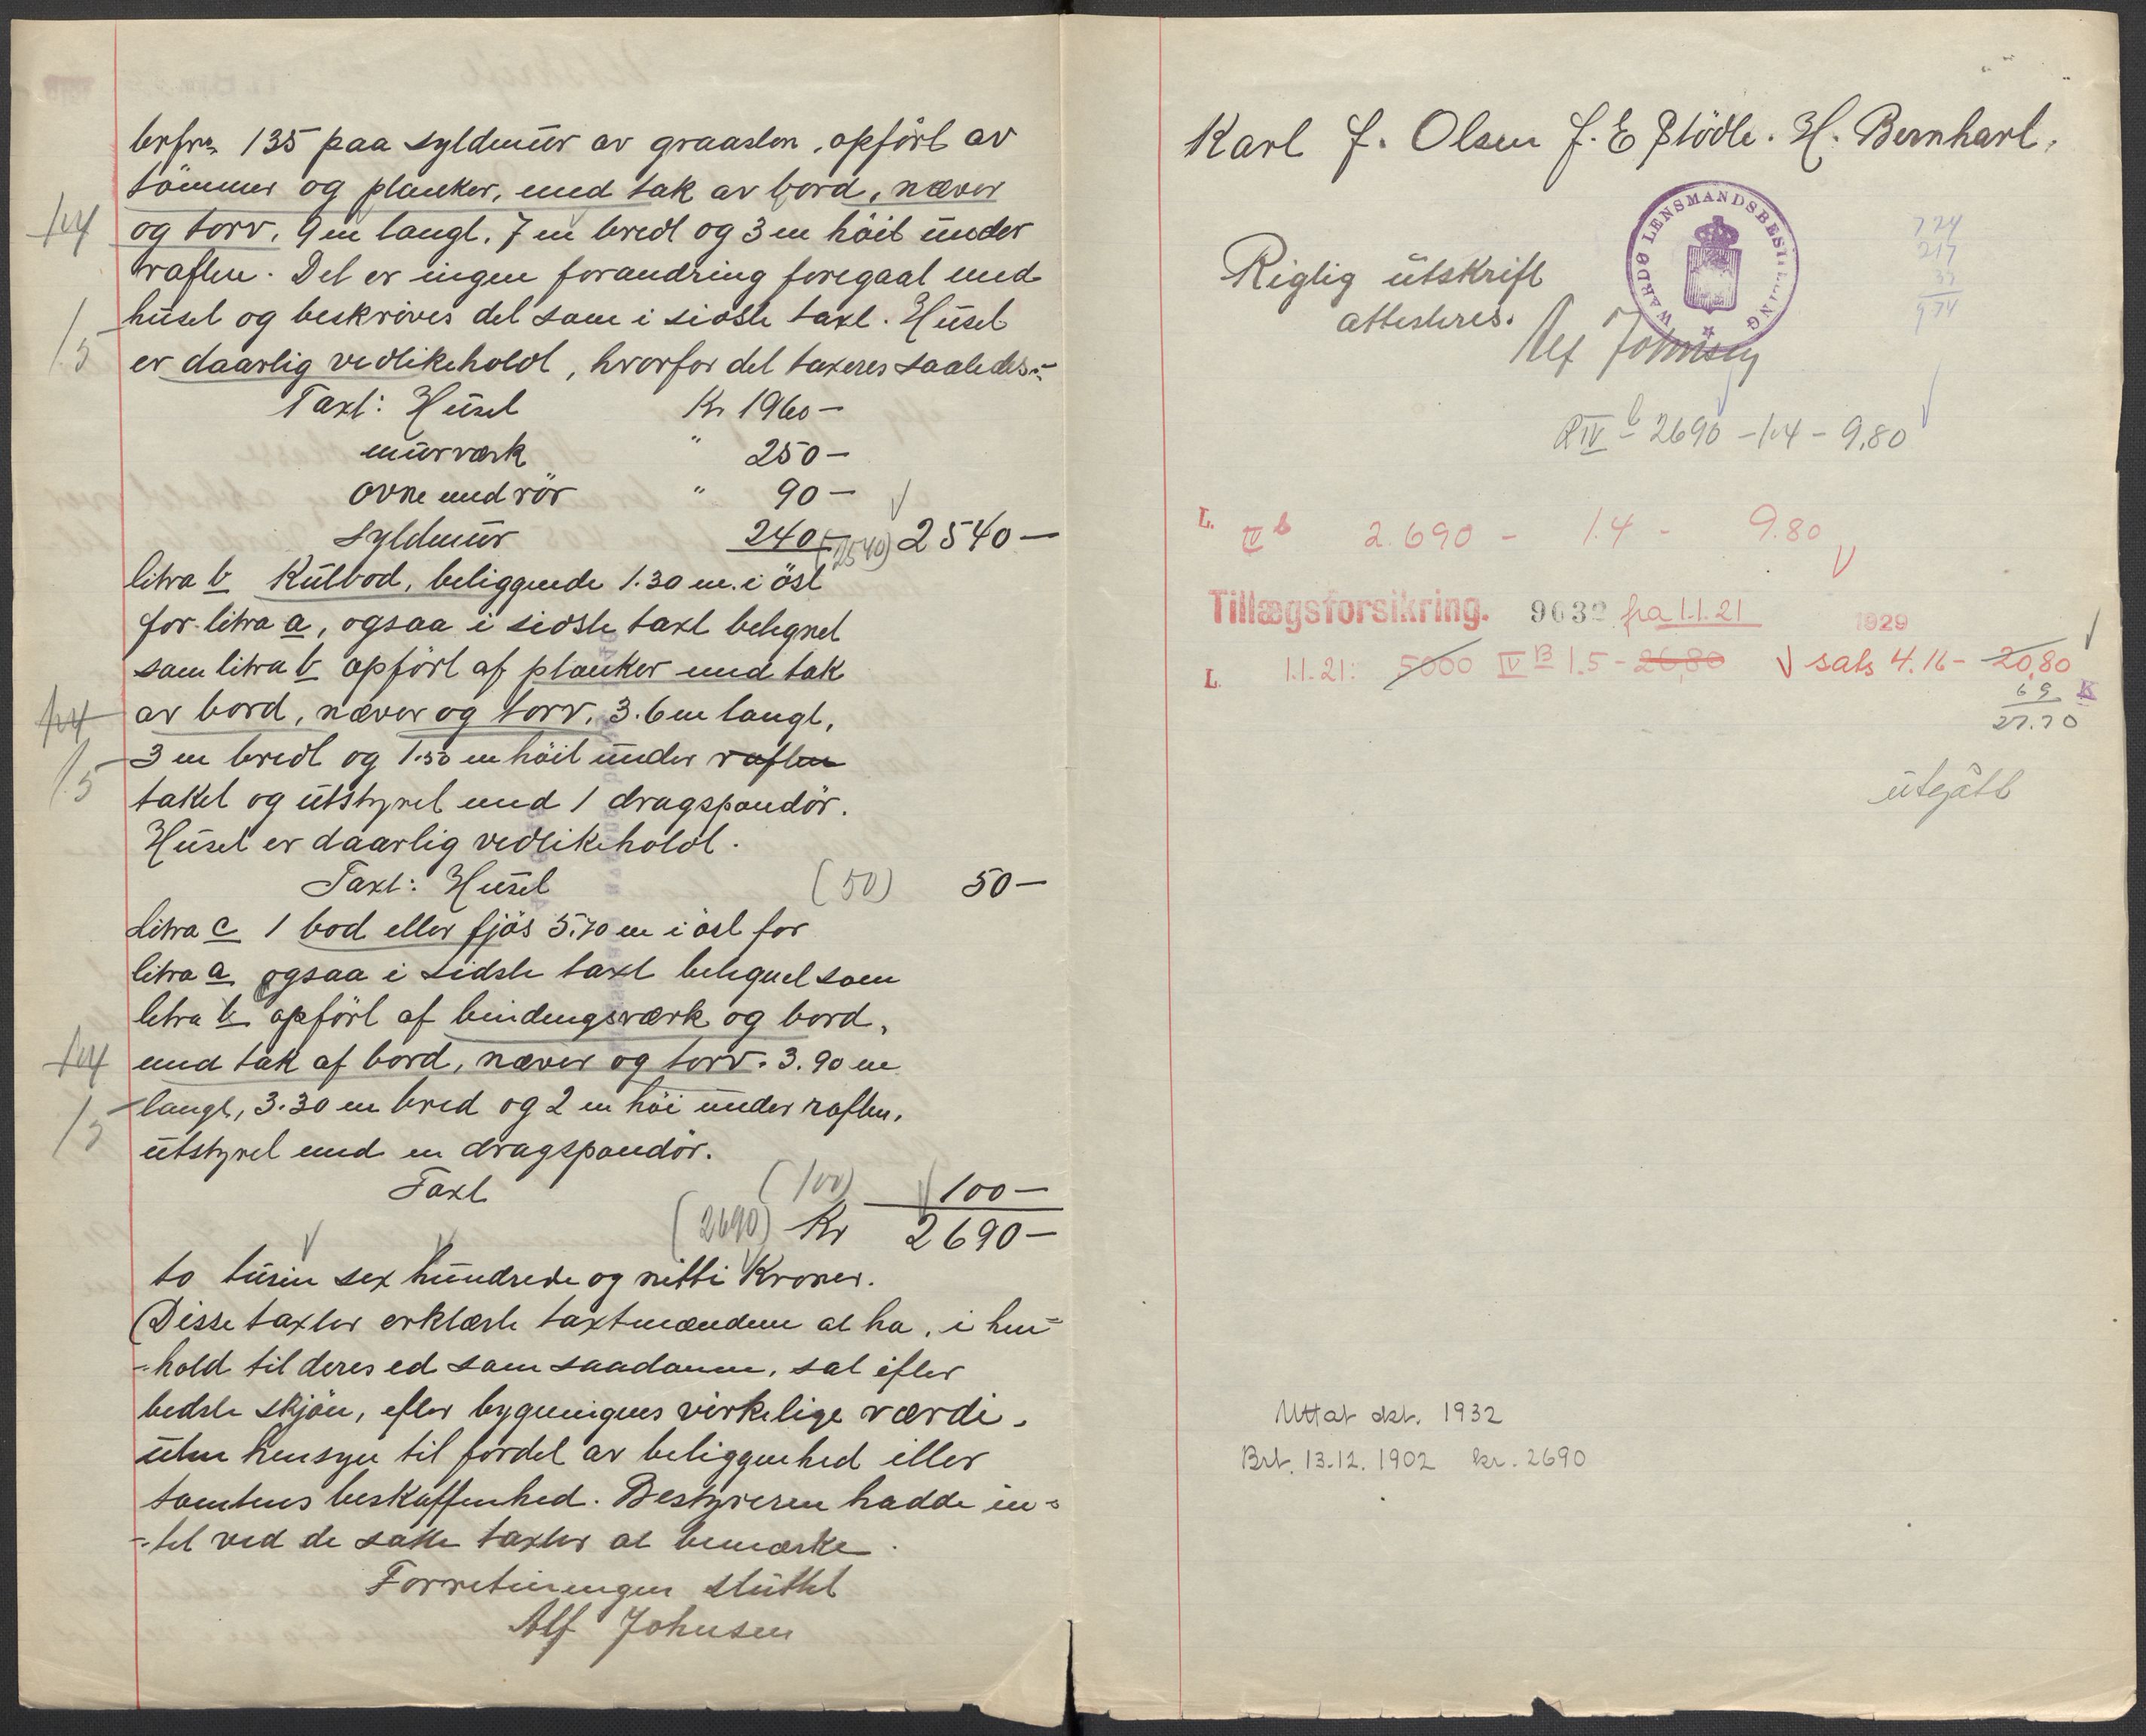 brfrn 135 paa syldmur av graasten, opført av
tömmer og planker, med tak av bord, næver
1.4 og torv, 9 m langt, 7 m bredt og 3 m höit under
raften. Det er ingen forandring foregaat med
1.5 huset og beskrives det som i sidste taxt. Huset
er daarlig vedlikeholdt, hvorfor det taxeres saaledes:
Taxt: Huset Kr 1960 —
murværk " 250 —
ovne med rör " 90 —
syldmur 240 — (2540) 2540 —
litra b Kulbod, beliggende 1.30 m. i öst
for litra a, ogsaa i sidste taxt betegnet
som litra b opfört af planker med tak
1.4 av bord, næver og torv, 3.6 m langt,
1.5 3 m bredt og 1.50 m höit under raften
taket og utstyret med 1 dragspandör.
Huset er daarlig vedlikeholdt.
Taxt: Huset (50) 50 —
Litra c 1 bod eller fjös 5.70 m i öst for
litra a ogsaa i sidste taxt betegnet som
letra b opfört af bindingsværk og bord,
1.4 med tak af bord, næver og torv. 3.90 m
1.5 langt, 3.30 m bred og 2 m höi under raften,
utstyret med en dragspandör.
Taxt (100) 100 —
(2690) Kr 2690 —
to tusin sex hundrede og nitti Kroner.
Disse taxter erklærte taxtmændene at ha, i hen-
-hold til deres ed som saadanne, sat efter
bedste skjön, efter bygningenes virkelige værdi,
uten hensyn til fordel av beliggenhed eller
tomtens beskaffenhed. Bestyreren hadde in-
-tet ved de satte taxter at bemærke.
Forretningen sluttet
Alf Johnsen
Karl J. Olsen J. E Stödle. H. Bernhart.
WARDØ LENSMANDSBESTILLING
724
217
33
974
Rigtig utskrift
attesteres.
Alf Johnsen
R IV b 2690 – 1.4 – 9.80
L. IV b 2.690 – 1.4 – 9.80
Tillægsforsikring. 9632 fra 1.1.21 1929
L. 1.1.21: 5000 IV B 1.5 – 26,80 sats 4.16 – 20,80
6 9 K
27.70
utgått
Uttat okt. 1932
Brt. 13.12. 1902 kr. 2690